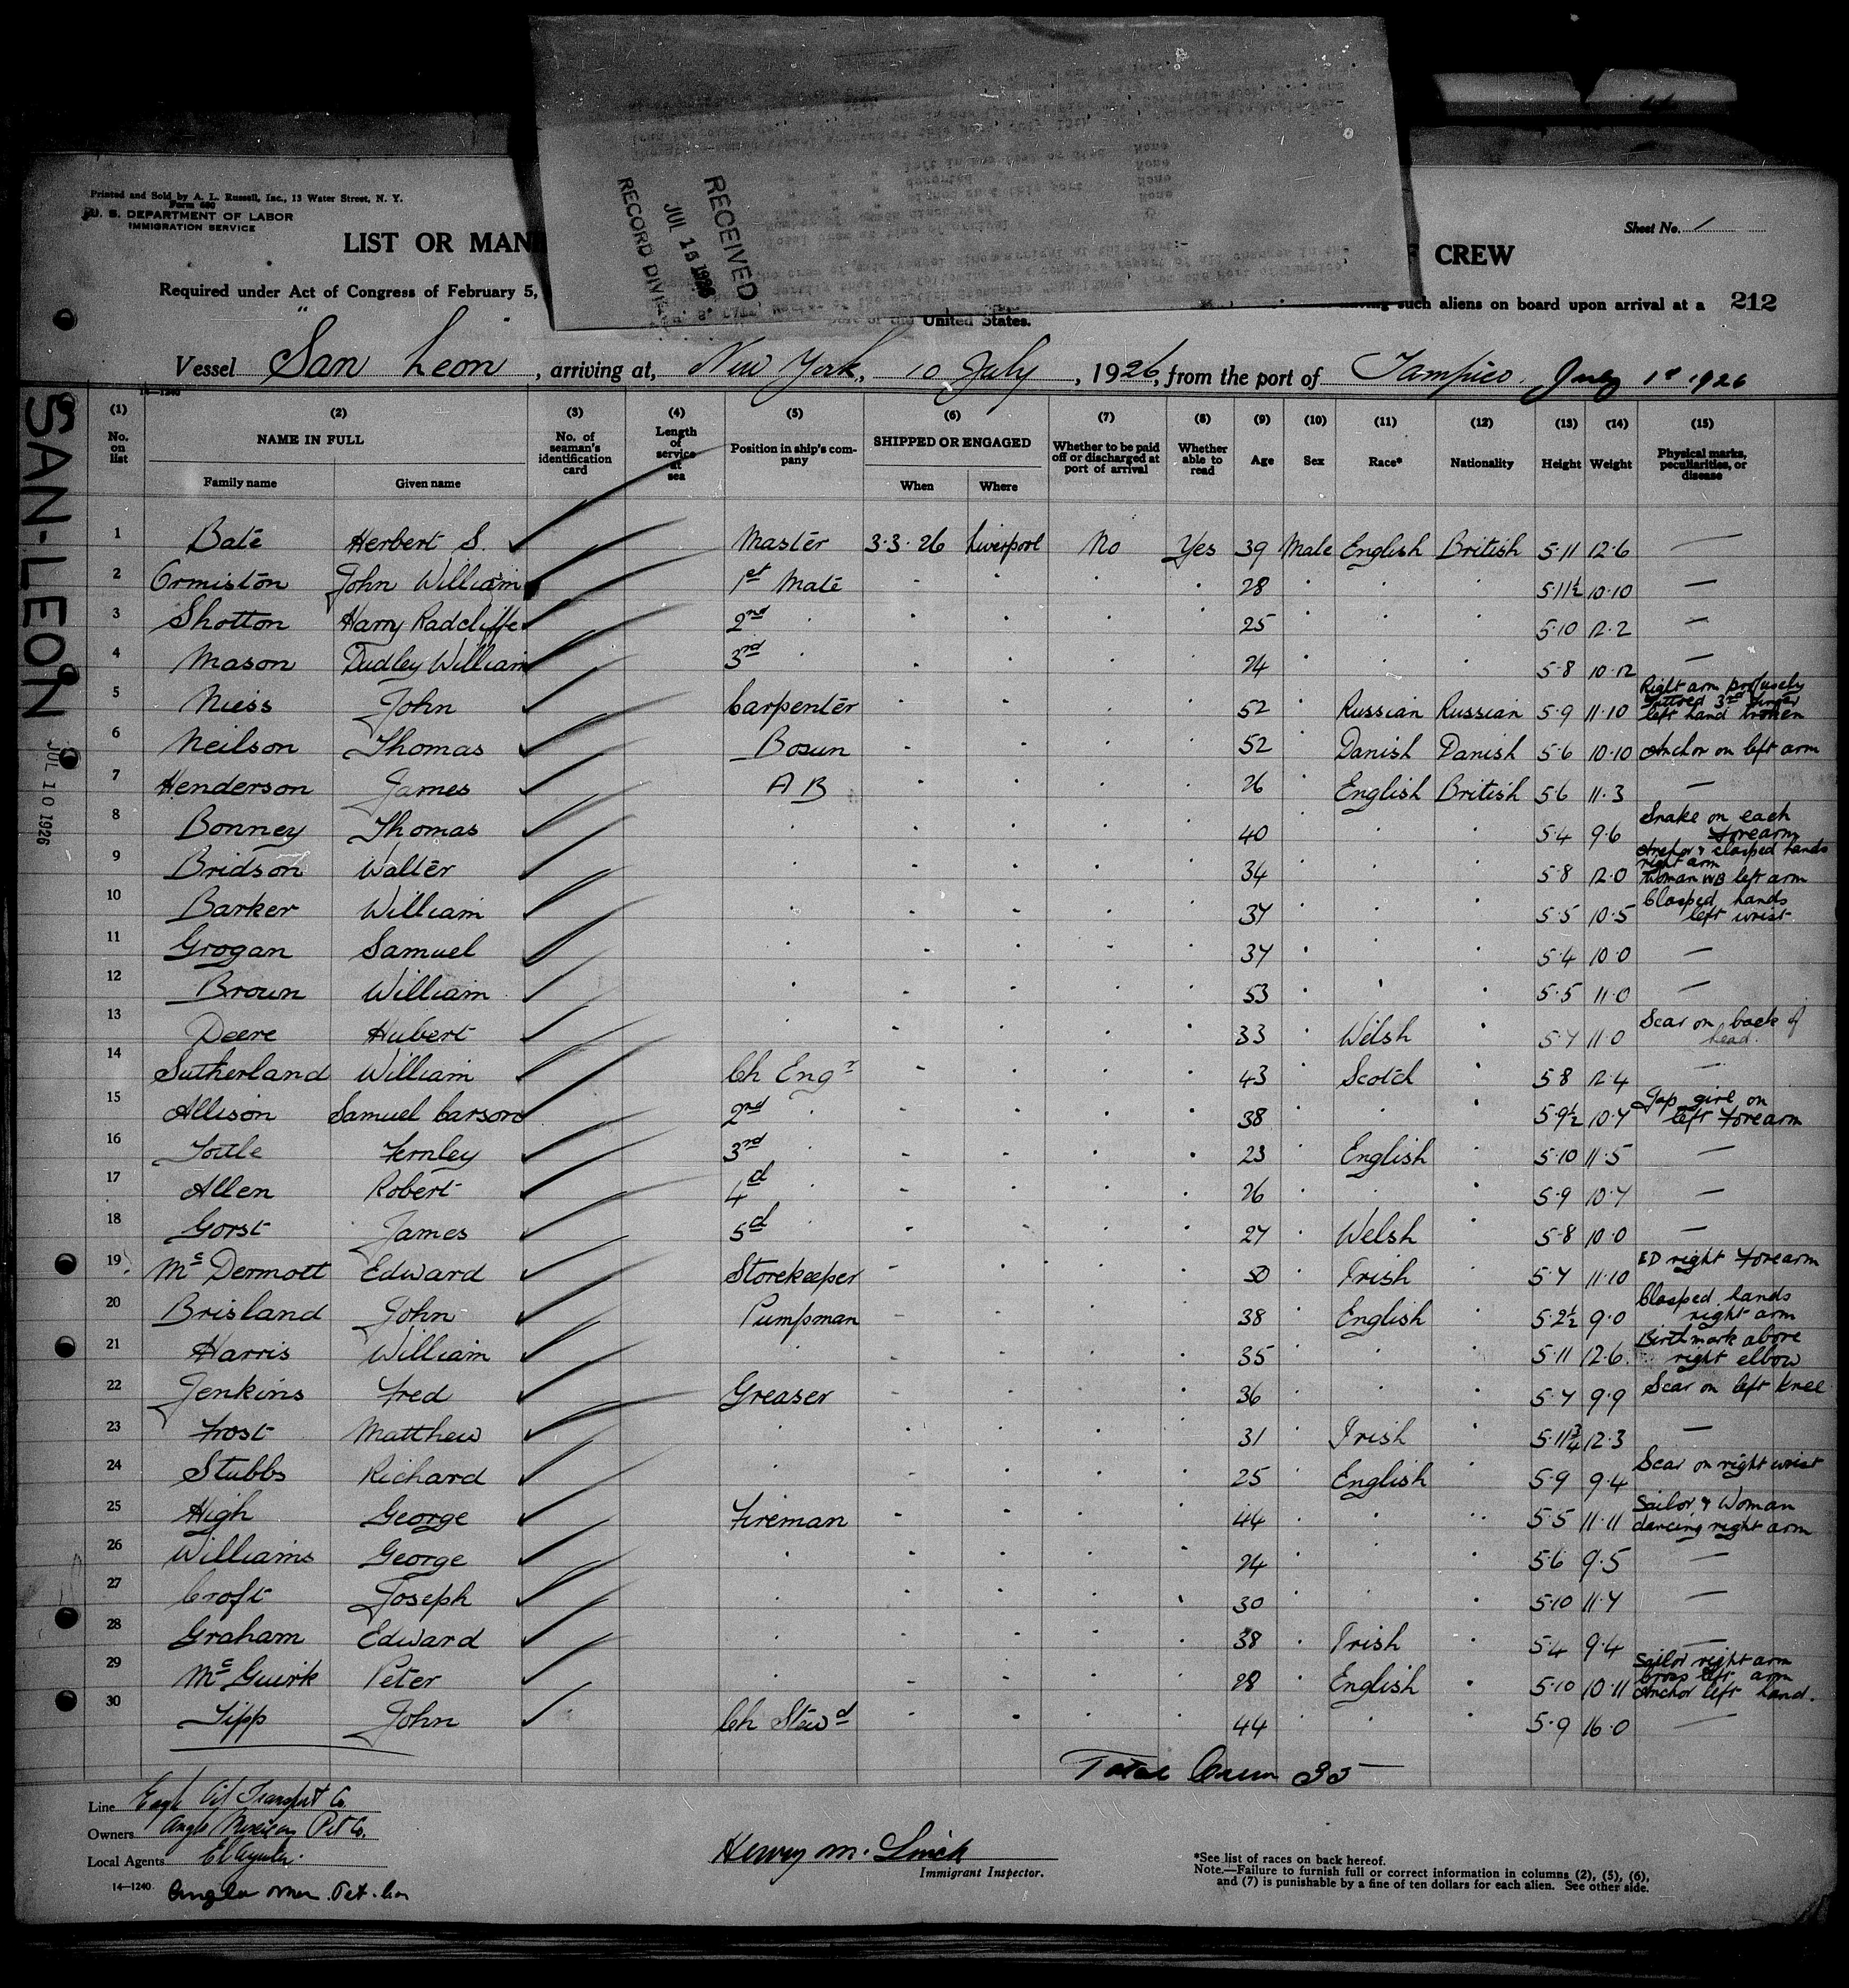 Printed and Sold by A. L. Russell, Inc., 13 Water Street, N. Y.
Form 680
U. S. DEPARTMENT OF LABOR
IMMIGRATION SERVICE
LIST OR MAN
CREW
Sheet No. 1
Required under Act of Congress of February 5,
such aliens on board upon arrival at a 212
port of the United States.
RECEIVED
JUL 15 1926
RECORD DIVI
None
None
None
None
Vessel San Leon, arriving at, New York, 10 July, 1926, from the port of Tampico. July 1st 1926
SAN-LEON
JUL 10 1926
14—1240
(1) (2) (3) (4) (5) (6) (7) (8) (9) (10) (11) (12) (13) (14) (15)
No. on list NAME IN FULL No. of seaman's identification card Length of service at sea Position in ship's company SHIPPED OR ENGAGED Whether to be paid off or discharged at port of arrival Whether able to read Age Sex Race* Nationality Height Weight Physical marks, peculiarities, or disease
Family name Given name When Where
1 Bate Herbert S. Master 3·3·26 Liverpool No Yes 39 Male English British 5·11 12·6 —
2 Ormiston John William 1st Mate 28 5·11½ 10·10 —
3 Shotton Harry Radcliffe 2nd 25 5·10 12·2 —
4 Mason Dudley William 3rd 24 5·8 10·12 —
5 Niess John Carpenter 52 Russian Russian 5·9 11·10 Right arm profusely tattooed 3rd finger left hand broken
6 Neilson Thomas Bosun 52 Danish Danish 5·6 10·10 Anchor on left arm
7 Henderson James A B 26 English British 5·6 11·3 —
8 Bonney Thomas 40 5·4 9·6 Snake on each forearm
9 Bridson Walter 34 5·8 12·0 Anchor & clasped hands right arm Woman WB left arm
10 Barker William 37 5·5 10·5 Clasped hands left wrist
11 Grogan Samuel 37 5·4 10·0 —
12 Brown William 53 5·5 11·0 —
13 Deere Hubert 33 Welsh 5·7 11·0 Scar on back of head.
14 Sutherland William Ch Engr 43 Scotch 5·8 12·4 —
15 Allison Samuel Carson 2nd 38 5·9½ 10·7 Jap girl on left forearm
16 Tottle Fernley 3rd 23 English 5·10 11·5 —
17 Allen Robert 4d 26 5·9 10·7 —
18 Gorst James 5d 27 Welsh 5·8 10·0 —
19 McDermott Edward Storekeeper 50 Irish 5·7 11·10 ED right forearm
20 Brisland John Pumpman 38 English 5·2½ 9·0 Clasped hands right arm
21 Harris William 35 5·11 12·6 Birthmark above right elbow
22 Jenkins Fred Greaser 36 5·7 9·9 Scar on left knee
23 Frost Matthew 31 Irish 5·11¾ 12·3 —
24 Stubbs Richard 25 English 5·9 9·4 Scar on right wrist
25 High George Fireman 44 5·5 11·11 Sailor & Woman dancing right arm
26 Williams George 24 5·6 9·5 —
27 Croft Joseph 30 5·10 11·7 —
28 Graham Edward 38 Irish 5·4 9·4 —
29 McGuirk Peter 28 English 5·10 10·11 Sailor right arm Cross left arm Anchor left hand.
30 Tipp John Ch Stewd 44 5·9 16·0 —
Total Crew 35
Line Eagle Oil Transport Co.
Owners Anglo Mexican Pet Co.
Local Agents
14—1240
Anglo Mex. Pet. Co
Henry M. Linck
Immigrant Inspector.
*See list of races on back hereof.
Note.—Failure to furnish full or correct information in columns (2), (5), (6),
and (7) is punishable by a fine of ten dollars for each alien. See other side.